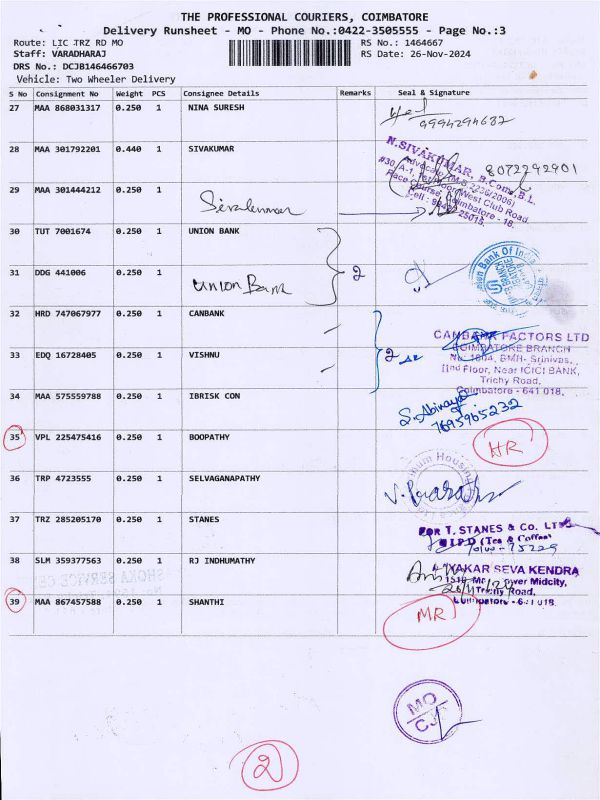 THE PROFESSIONAL COURIERS, COIMBATORE
Delivery Runsheet - MO - Phone No.:0422-3505555 - Page No.:3
Route: LIC TRZ RD MO
RS No.: 1464667
Staff: VARADHARAJ
RS Date: 26-Nov-2024
DRS No.: DCJB146466703
Vehicle: Two Wheeler Delivery
S No Consignment No Weight PCS Consignee Details Remarks Seal & Signature
27 MAA 868031317 0.250 1 NINA SURESH
9994294682
28 MAA 301792201 0.440 1 SIVAKUMAR
N.SIVAKUMAR, B.Com., B.L.
Advocate
8072292901
Race Course, Coimbatore - 18.
29 MAA 301444212 0.250 1
30 TUT 7001674 0.250 1 UNION BANK
Union Bank Of India
2
31 DDG 441006 0.250 1 Union Bank
32 HRD 747067977 0.250 1 CANBANK
CANBANK FACTORS LTD
COIMBATORE BRANCH
33 EDQ 16728405 0.250 1 VISHNU
2
No. 1604, BMH- Srinivas,
IInd Floor, Near ICICI BANK,
Trichy Road,
Coimbatore - 641 018.
34 MAA 575559788 0.250 1 IBRISK CON
S. Abinaya
7695965232
35 VPL 225475416 0.250 1 BOOPATHY
HR
36 TRP 4723555 0.250 1 SELVAGANAPATHY
37 TRZ 285205170 0.250 1 STANES
FOR T. STANES & CO. LTD
(Tea & Coffee)
38 SLM 359377563 0.250 1 RJ INDHUMATHY
YAKAR SEVA KENDRA
Midcity,
Trichy Road,
39 MAA 867457588 0.250 1 SHANTHI
MR
MO
CJ
2